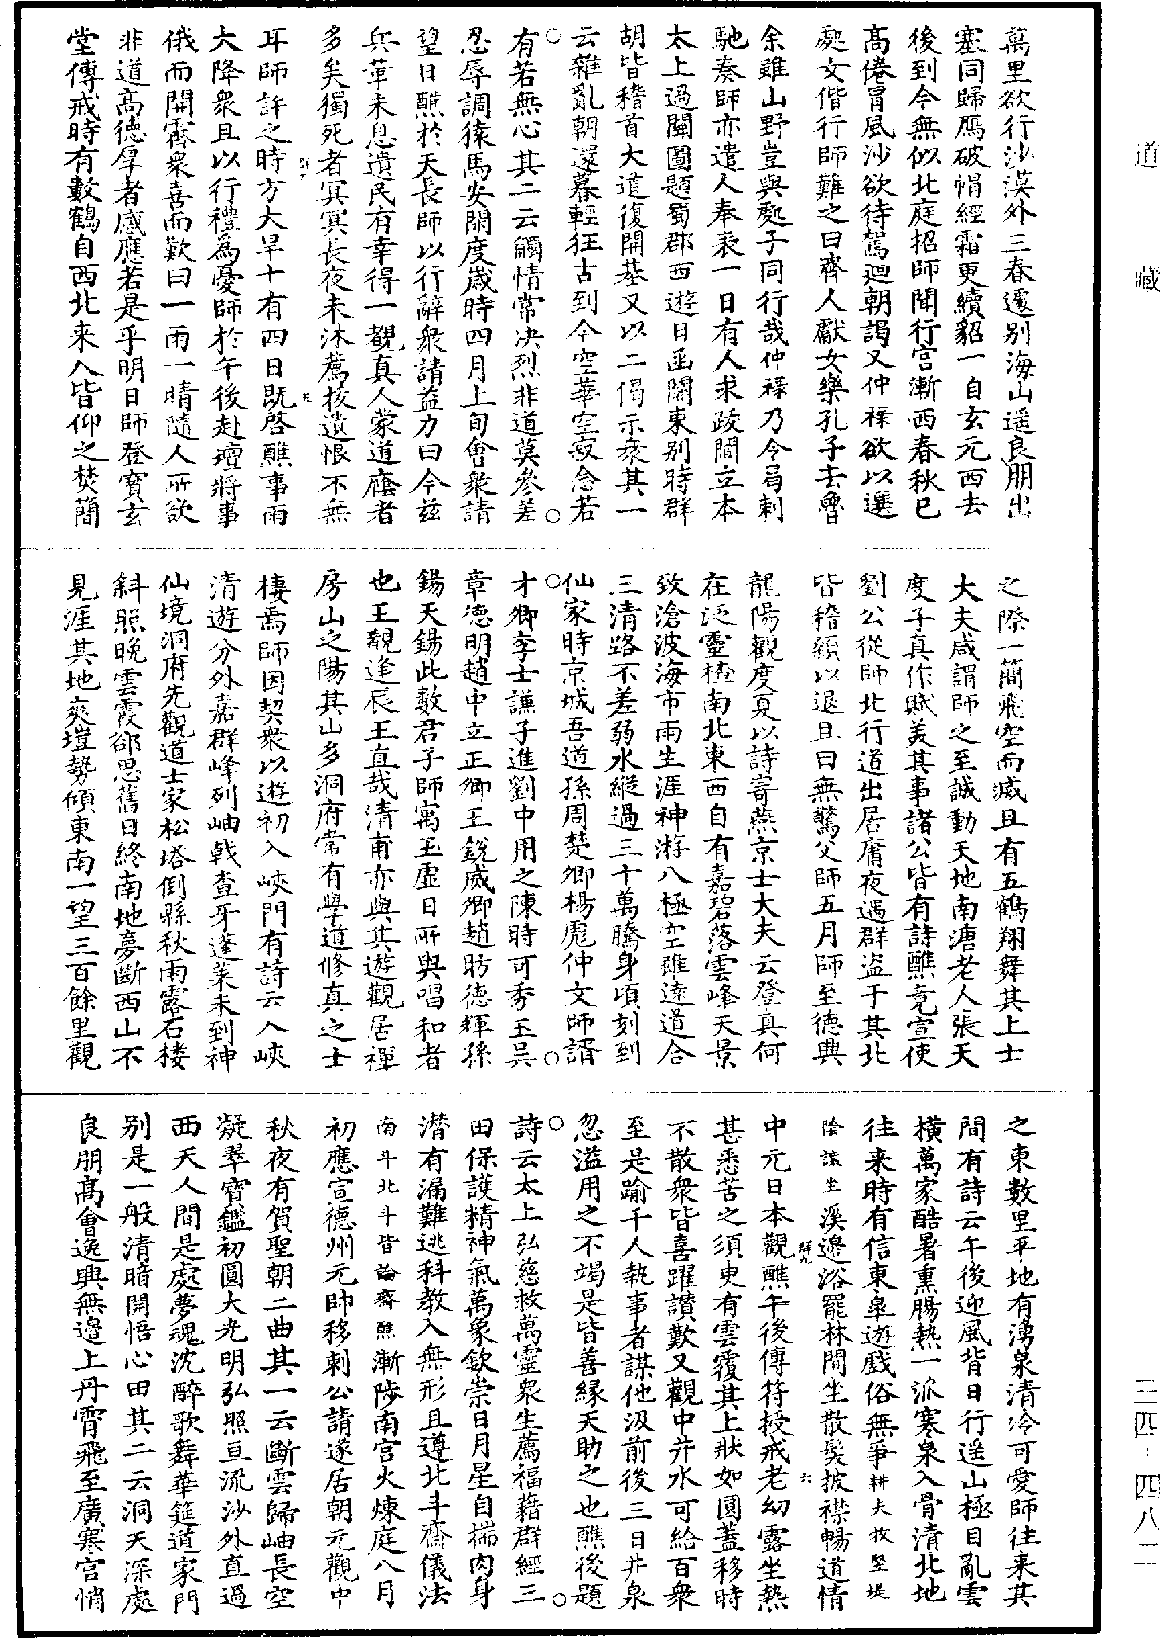 道藏
三四·四八二
萬里欲行沙漠外三春遽別海山遥良朋出
塞同歸鴈破帽經霜更續貂一自玄元西去
後到今無似北庭招師聞行宮漸西春秋已
高倦冒風沙欲待駕迴朝謁又仲祿欲以選
處女偕行師難之曰齊人獻女樂孔子去魯
余雖山野豈與處子同行哉仲祿乃令曷剌
馳奏師亦遣人奉表一日有人求跋閻立本
太上過關圖題蜀郡西遊日函關東別時群
胡皆稽首大道復開基又以二偈示衆其一
云雜亂朝還暮輕狂古到今空華空寂念若
有若無心其二云觸情常决烈非道莫參差
忍辱調猿馬安閑度歲時四月上旬會衆請
望日醮於天長師以行辭衆請益力曰今兹
兵革未息遺民有幸得一覩真人蒙道廕者
多矣獨死者冥冥長夜未沐薦拔遺恨不無
耳師許之時方大旱十有四日既啓醮事雨
大降衆且以行禮爲憂師於午後赴壇將事
俄而開霽衆喜而歎曰一雨一晴隨人所欲
非道高德厚者感應若是乎明日師登寶玄
堂傳戒時有數鶴自西北来人皆仰之焚簡
之際一簡飛空而滅且有五鶴翔舞其上士
大夫咸謂師之至誠動天地南溏老人張天
度子真作賦美其事諸公皆有詩醮竟宣使
劉公從師北行道出居庸夜遇群盗于其北
皆稽顙以退且曰無驚父師五月師至德興
龍陽觀度夏以詩寄燕京士大夫云登真何
在泛靈槎南北東西自有嘉碧落雲峰天景
致滄波海市雨生涯神游八極空雖遠道合
三清路不差弱水縱過三十萬騰身頃刻到
仙家時京城吾道孫周楚卿楊彪仲文師諝
才卿李士謙子進劉中用之陳時可秀玉吳
章德明趙中立正卿王銳威卿趙昉德輝孫
錫天錫此數君子師寓玉虚日所與唱和者
也王覯逢辰王直哉清甫亦與其遊觀居禪
房山之陽其山多洞府常有學道修真之士
棲焉師因挈衆以遊初入峽門有詩云入峽
清遊分外嘉群峰列岫戟查牙蓬萊未到神
仙境洞府先觀道士家松塔倒縣秋雨露石樓
斜照晚雲霞却思舊日終南地夢斷西山不
見涯其地爽塏勢傾東南一望三百餘里觀
之東數里平地有湧泉清冷可愛師往来其
間有詩云午後迎風背日行遥山極目亂雲
橫萬家酷暑熏腸熱一派寒泉入骨清北地
往来時有信東皐遊戲俗無爭耕夫牧竪堤
陰讓坐溪邊浴罷林間坐散髮披襟暢道情
中元日本觀醮午後傳符授戒老幼露坐熱
甚悉苦之須臾有雲覆其上狀如圓蓋移時
不散衆皆喜躍讃歎又觀中井水可給百衆
至是踰千人執事者謀他汲前後三日井泉
忽溢用之不竭是皆善緣天助之也醮後題
詩云太上弘慈救萬靈衆生薦福藉群經三
田保護精神氣萬象欽崇日月星自揣肉身
潜有漏難逃科教入無形且遵北斗齋儀法
南斗北斗皆論齋醮漸陟南宮火煉庭八月
初應宣德州元帥移剌公請遂居朝元觀中
秋夜有賀聖朝二曲其一云斷雲歸岫長空
凝翠寶鑑初圓大光明弘照亘流沙外直過
西天人間是處夢魂沈醉歌舞華筵道家門
別是一般清暗開悟心田其二云洞天深處
良朋高會逸興無邊上丹霄飛至廣寒宮悄